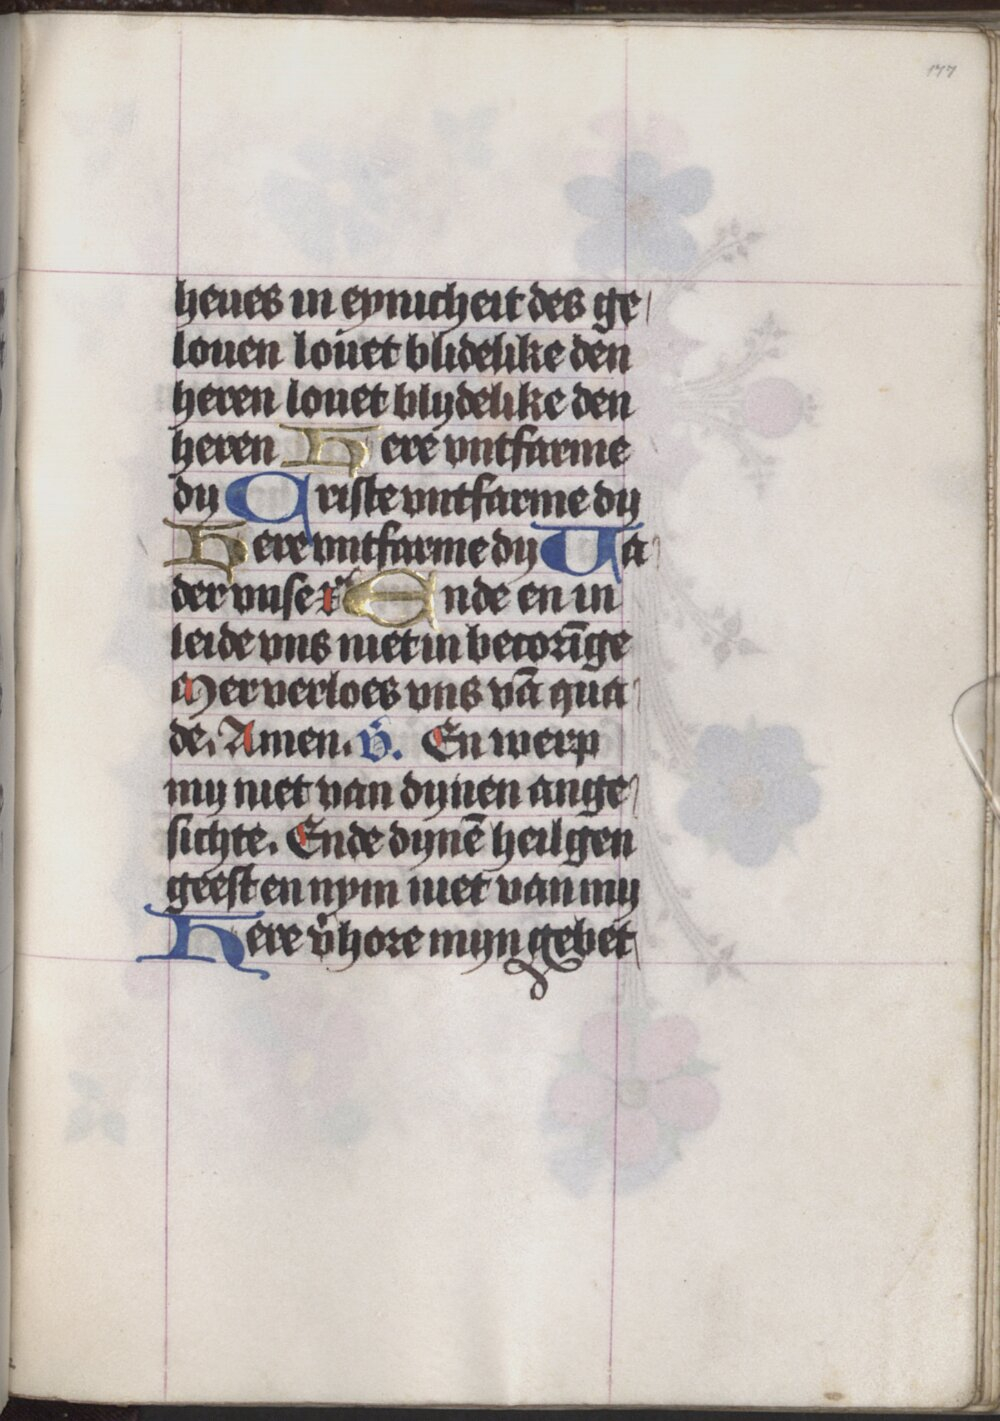 177
heues in eynicheit des ge
louen louet blidelike den
heren louet blydelike den
heren Here vntfarme
dy Criste vntfarme dy
Here vntfarme dy Va
der vnse r̃ Ende en in
leide vns niet in becorīge
Mer verloes vns vā qua
de. Amen. v̉. En werp
my niet van dynen ange
sichte. Ende dynē heilgen
geest en nym niet van my
Here v̉hore myn gebet